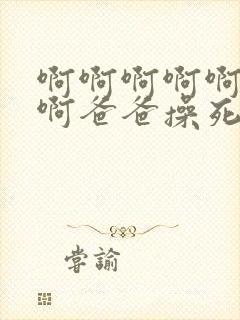 啊啊啊啊啊
啊爸爸操死
嘗諭